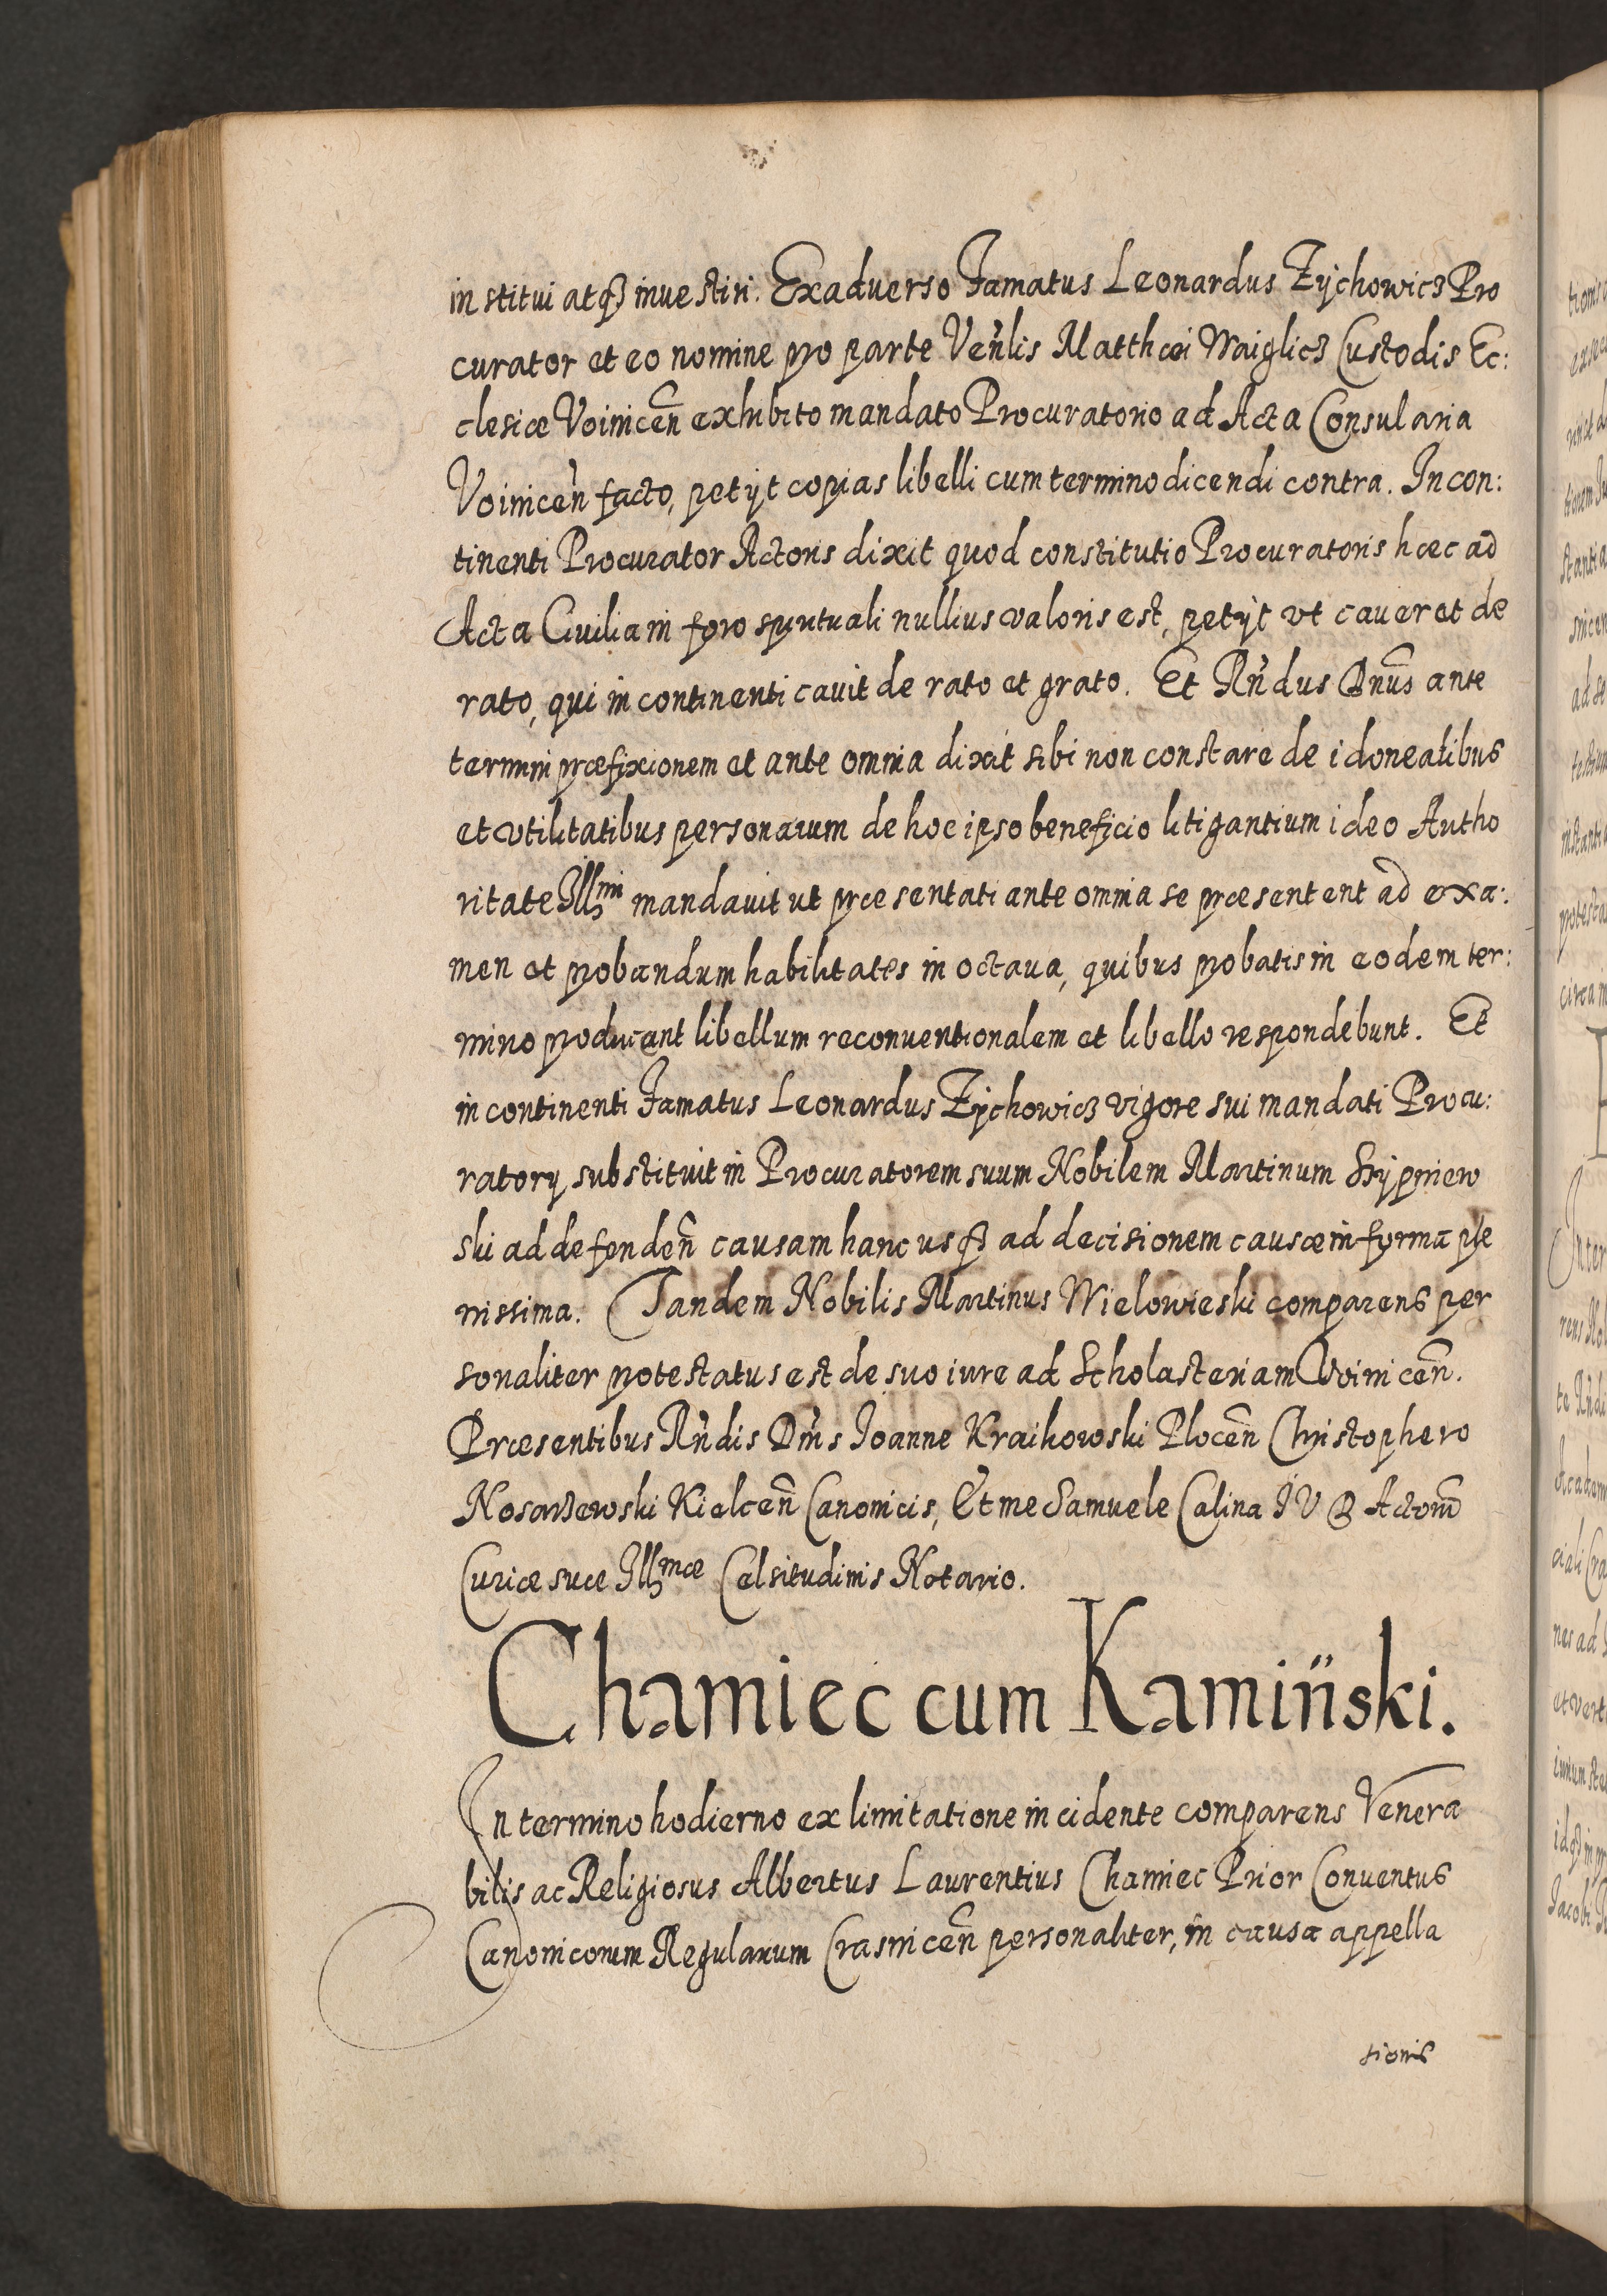 institui atqꝫ inuestiri. Ex aduerso Famatus Leonardus Zychowicz Pro
curator et eo nomine pro parte Veñlis Matthæi Waiglicz Custodis Ec:
clesiæ Voinicen̄ exhibito mandato Procuratorio ad Acta Consularia
Voinicen̄ facto, petijt copias libelli cum termino dicendi contra. In con:
tinenti Procurator Actoris dixit quod constitutio Procuratoris hæc ad
Acta Ciuilia in foro spirituali nullius valoris est, petijt vt caueret de
rato, qui in continenti cauit de rato et grato. Et Rñdus Dnus̄ ante
termini præfixionem et ante omnia dixit sibi non constare de idoneatibus
et vtilitatibus personarum de hoc ipso beneficio litigantium ideo Autho
ritate Illmi mandauit ut præsentati ante omnia se præsentent ad exa:
men et probandum habilitates in octaua, quibus probatis in eodem ter:
mino producent libellum reconuentionalem et libello respondebunt. Et
in continenti Famatus Leonardus Zychowicz vigore sui mandati Procu:
ratorij substituit in Procuratorem suum Nobilem Martinum Skrypniew
ski ad defenden̄ causam hanc usqꝫ ad decisionem causæ in forma ple
nissima. Tandem Nobilis Martinus Wielowieski comparens per
sonaliter protestatus est de suo iure ad Scholasteriam Voinicen̄.
Præsentibus Rñdis Dm̄s Joanne Kraikowski Plocen̄ Christophero
Nosarzewski Kielcen̄ Canonicis, Et me Samuele Calina J V D Actorum̄
Curiæ suæ Illmæ Celsitudinis Notario.
Chamiec cum Kamiński.
In termino hodierno ex limitatione incidente comparens Venera
bilis ac Religiosus Albertus Laurentius Chamiec Prior Conuentus
Canonicorum Regularium Crasnicen̄ personaliter, in causa appella
tionis